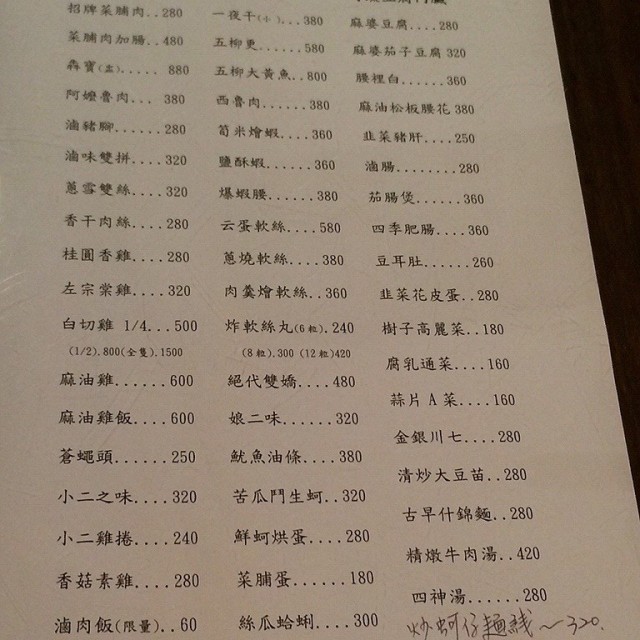 招牌菜脯肉..280
菜脯肉加腸..480
犇寶(盅)..... 880
阿嬤魯肉... 380
滷豬腳......280
滷味雙拼....320
蔥雪雙絲....320
香干肉絲....280
桂圓香雞....280
左宗棠雞....320
白切雞 1/4...500
(1/2).800(全隻).1500
麻油雞......600
麻油雞飯....600
蒼蠅頭......250
小二之味....320
小二雞捲....240
香菇素雞....280
滷肉飯(限量)..60
一夜干(小)...380
五柳更......580
五柳大黃魚..800
西魯肉......380
筍米燴蝦....360
鹽酥蝦......360
爆蝦腰......380
云蛋軟絲....580
蔥燒軟絲....380
肉羹燴軟絲..360
炸軟絲丸(6粒).240
(8粒).300 (12粒)420
絕代雙嬌....480
娘二味......320
魷魚油條....380
苦瓜鬥生蚵..320
鮮蚵烘蛋....280
菜脯蛋......180
絲瓜蛤蜊....300
麻婆豆腐....280
麻婆茄子豆腐 320
腰裡白......360
麻油松板腰花 380
韭菜豬肝....250
滷腸........280
茄腸煲......360
四季肥腸....360
豆耳肚......260
韭菜花皮蛋..280
樹子高麗菜..180
腐乳通菜....160
蒜片A菜....160
金銀川七....280
清炒大豆苗..280
古早什錦麵..280
精燉牛肉湯..420
四神湯......280
炒蚵仔麵線～320.